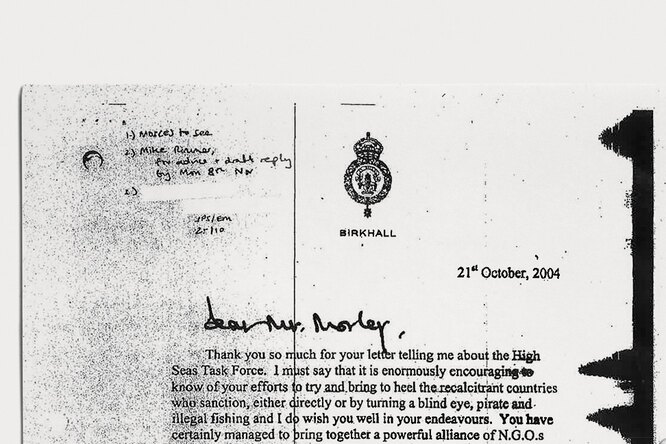 1.) Morces to see
2.) Mike
for advice + draft reply
by Mon 8th Nov
3.)
JPS/EM
25/10
BIRKHALL
21st October, 2004
dear Mr. Morley,
Thank you so much for your letter telling me about the High
Seas Task Force. I must say that it is enormously encouraging to
know of your efforts to try and bring to heel the recalcitrant countries
who sanction, either directly or by turning a blind eye, pirate and
illegal fishing and I do wish you well in your endeavours. You have
certainly managed to bring together a powerful alliance of N.G.O.s